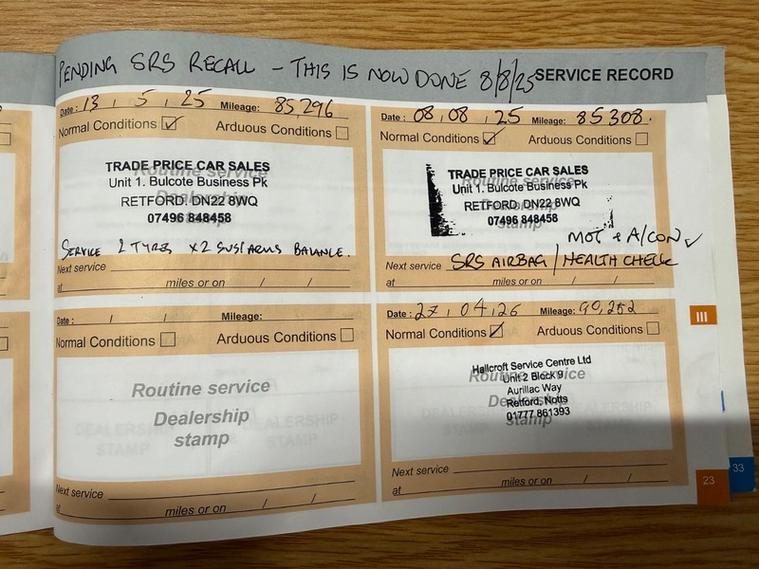 PENDING SRS RECALL - THIS IS NOW DONE 8/8/25 SERVICE RECORD
Date: 13, 5, 25 Mileage: 85,296
Normal Conditions ✓ Arduous Conditions
Routine service
Dealership
stamp
TRADE PRICE CAR SALES
Unit 1. Bulcote Business Pk
RETFORD. DN22 8WQ
07496 848458
SERVICE 2 TYRES x2 SUS/ARMS BALANCE.
Next service
at miles or on / /
Date: 08, 08, 25 Mileage: 85308.
Normal Conditions ✓ Arduous Conditions
Routine service
stamp
TRADE PRICE CAR SALES
Unit 1. Bulcote Business Pk
RETFORD. DN22 8WQ
07496 848458
MOT + A/CON ✓
Next service SRS AIRBAG / HEALTH CHECK
at miles or on / /
Date: / / Mileage:
Normal Conditions Arduous Conditions
Routine service
Dealership
stamp
Next service
at miles or on / /
Date: 27, 04, 26 Mileage: 90,252
Normal Conditions ✓ Arduous Conditions
Routine service
stamp
Hallcroft Service Centre Ltd
Unit 2 Block 9
Aurillac Way
Retford, Notts
01777 861393
Next service
at miles or on / /
III
23
33
DEALERSHIP
STAMP